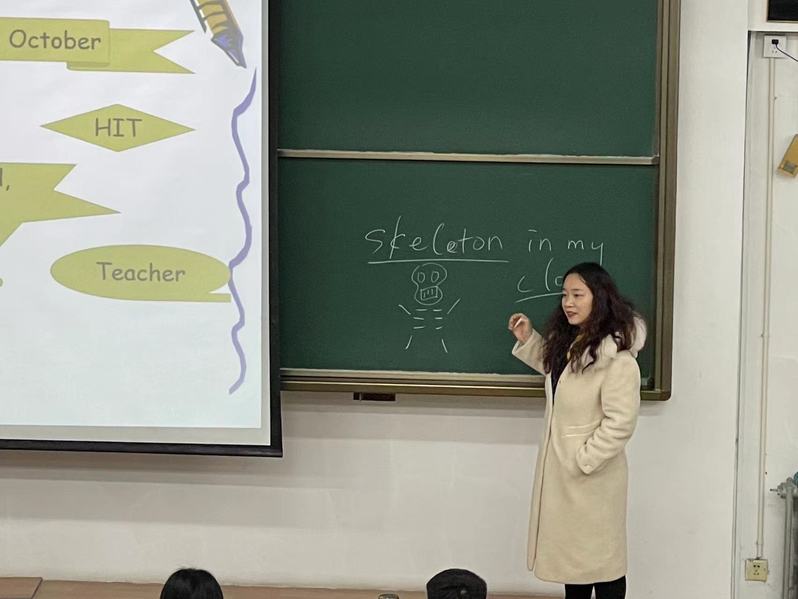 October
HIT
Teacher
skeleton in my